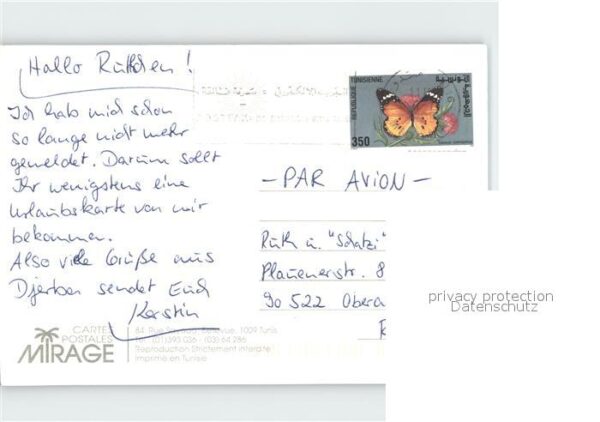 Hallo Ruthchen!
Ich hab mich schon
so lange nicht mehr
gemeldet. Darum sollt
Ihr wenigstens eine
Urlaubskarte von mir
bekommen.
Also viele Grüße aus
Djerba sendet Euch
Kerstin
CARTES
POSTALES
MIRAGE
84, Rue Bellevue, 1009 Tunis
Tel. (01) 393 036 - (03) 64 286
Reproduction Strictement interdite
Imprimé en Tunisie
REPUBLIQUE
TUNISIENNE
350
- PAR AVION -
Ruth u. "Schatzi"
Plauenerstr. 8
90 522 Obera
privacy protection
Datenschutz